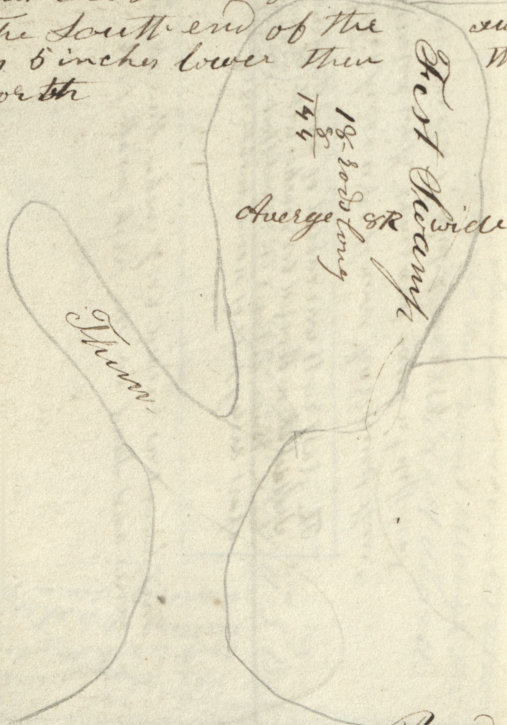 The South end of the
5 inches lower then
orth
Fist Swamp
18 rods long
8
144
Averge 8R wide
Thum